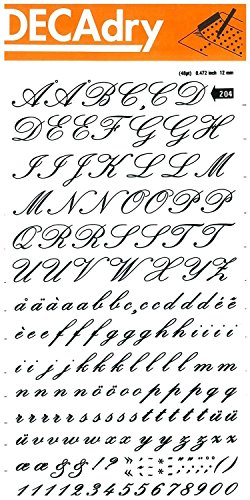 DECAdry
(48pt) 0.472 inch 12 mm
A Å B C Ç D
204
D E E F G G H
I I J K L L M
M N N O O P P
Q R R S S T T
U U V W X Y Z
å ä à a a b b c , c c d d é
è e e f f f g g g h h i i i i
i i j j k k l l l l l m m
m n n n n ö ö o o p p p q g
r r r r s s s s s t t t t t ü ü
ü u v v w w x x y y y z z z
æ œ & ! ?
1 2 3 4 5 6 7 8 9 0 0